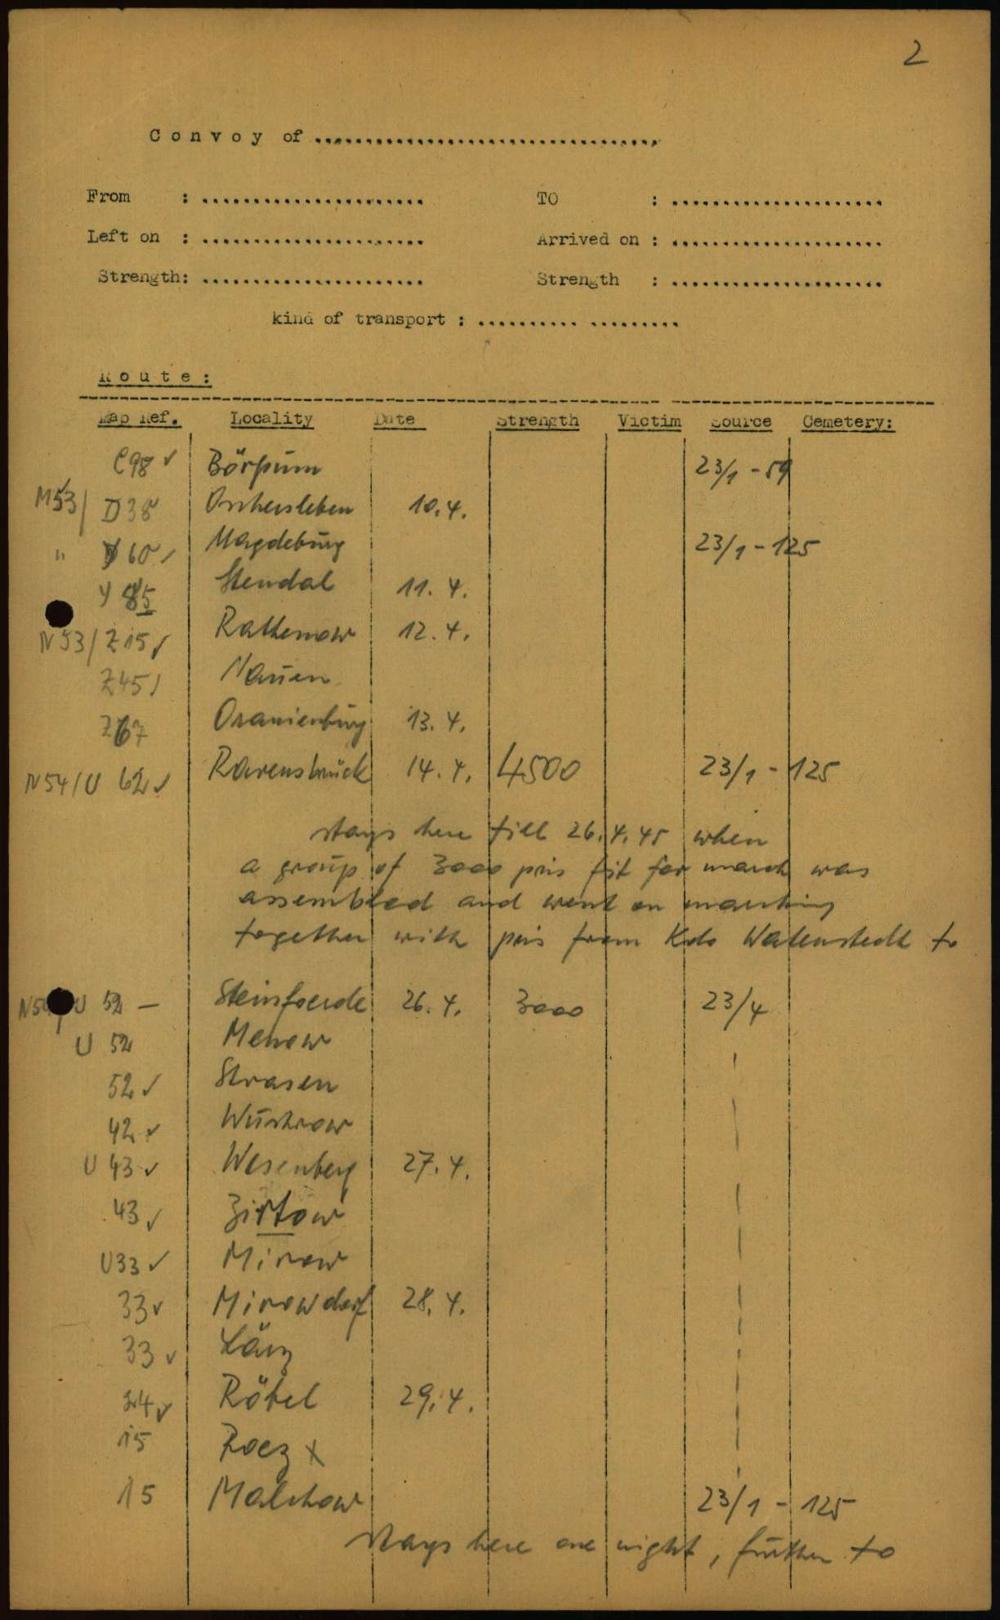 2
Convoy of ..................................
From : ...................... TO : .....................
Left on : ...................... Arrived on : .....................
Strength: ...................... Strength : .....................
kind of transport : .......... .........
Route:
Map Ref. Locality Date Strength Victim Source Cemetery:
C98 ✓ Börpum 23/1 - 59
M53/ D38 Oschersleben 10.4.
" 60 ✓ Magdeburg 23/1 - 125
Y 85 Stendal 11.4.
N53/Z15 ✓ Rathenow 12.4.
Z45 ✓ Nauen
Z67 Oranienburg 13.4.
N54/U 62 ✓ Ravensbrück 14.4. 4500 23/1 - 125
stays here till 26.4.45 when
a group of 3000 pris fit for march was
assembled and went on marching
together with pris from Kdo Watenstedt to
U 52 — Steinfoerde 26.4. 3000 23/4
U 52 Menow
52 ✓ Strasen
42 ✓ Wustrow
U 43 ✓ Wesenberg 27.4.
43 ✓ Zirtow
U33 ✓ Mirow
33 ✓ Mirowdorf 28.4.
33 ✓ Lärz
24 ✓ Röbel 29.4.
15 Roez x
15 Malchow 23/1 - 125
stays here one night, further to